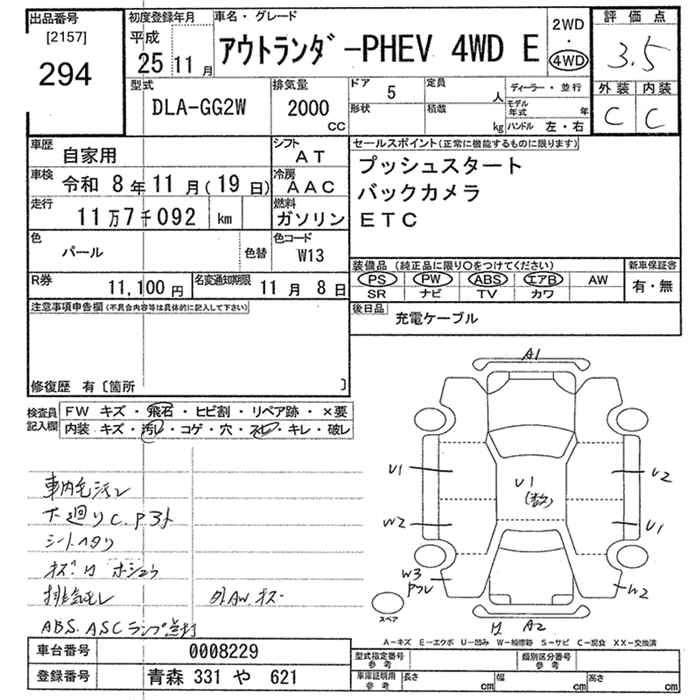 出品番号
[2157]
294
初度登録年月
平成
25 11 月
車名・グレード
アウトランダ゛-PHEV 4WD E
2WD
・
4WD
評価点
3.5
外装 内装
C C
型式
DLA-GG2W
排気量
2000
cc
ドア
5
定員
人
形状
積載
kg
ディーラー・並行
モデル年式 年
ハンドル 左・右
車歴
自家用
シフト
AT
車検
令和 8 年 11 月(19 日)
冷房
AAC
走行
11 万 7 千 092 km
燃料
ガソリン
色
パール
色替
色コード
W13
R券
11,100 円
名変通知期限
11 月 8 日
セールスポイント(正常に機能するものに限ります)
プッシュスタート
バックカメラ
ETC
装備品 (純正品に限り○をつけてください)
PS PW ABS エアB AW
SR ナビ TV カワ
新車保証書
有・無
後日品
充電ケーブル
注意事項申告欄(不具合内容等は具体的に記入して下さい)
修復歴 有〔箇所 〕
検査員
記入欄
FW キズ・飛石・ヒビ割・リペア跡・×要
内装 キズ・汚レ・コゲ・穴・スレ・キレ・破レ
車内毛汚レ
下廻りC.P3ト
シートヘタリ
排気モレ
外AWキズ
ABS.ASCランプ点灯
A1
U1
U2
U1
W2
U1
W3
W2
A2
スペア
A-キズ E-エクボ U-凹み W-補修跡 S-サビ C-腐食 XX-交換済
車台番号
0008229
登録番号
青森 331 や 621
型式指定番号
参考
類別区分番号
参考
車庫証明用
参考
長さ cm
幅 cm
高さ cm